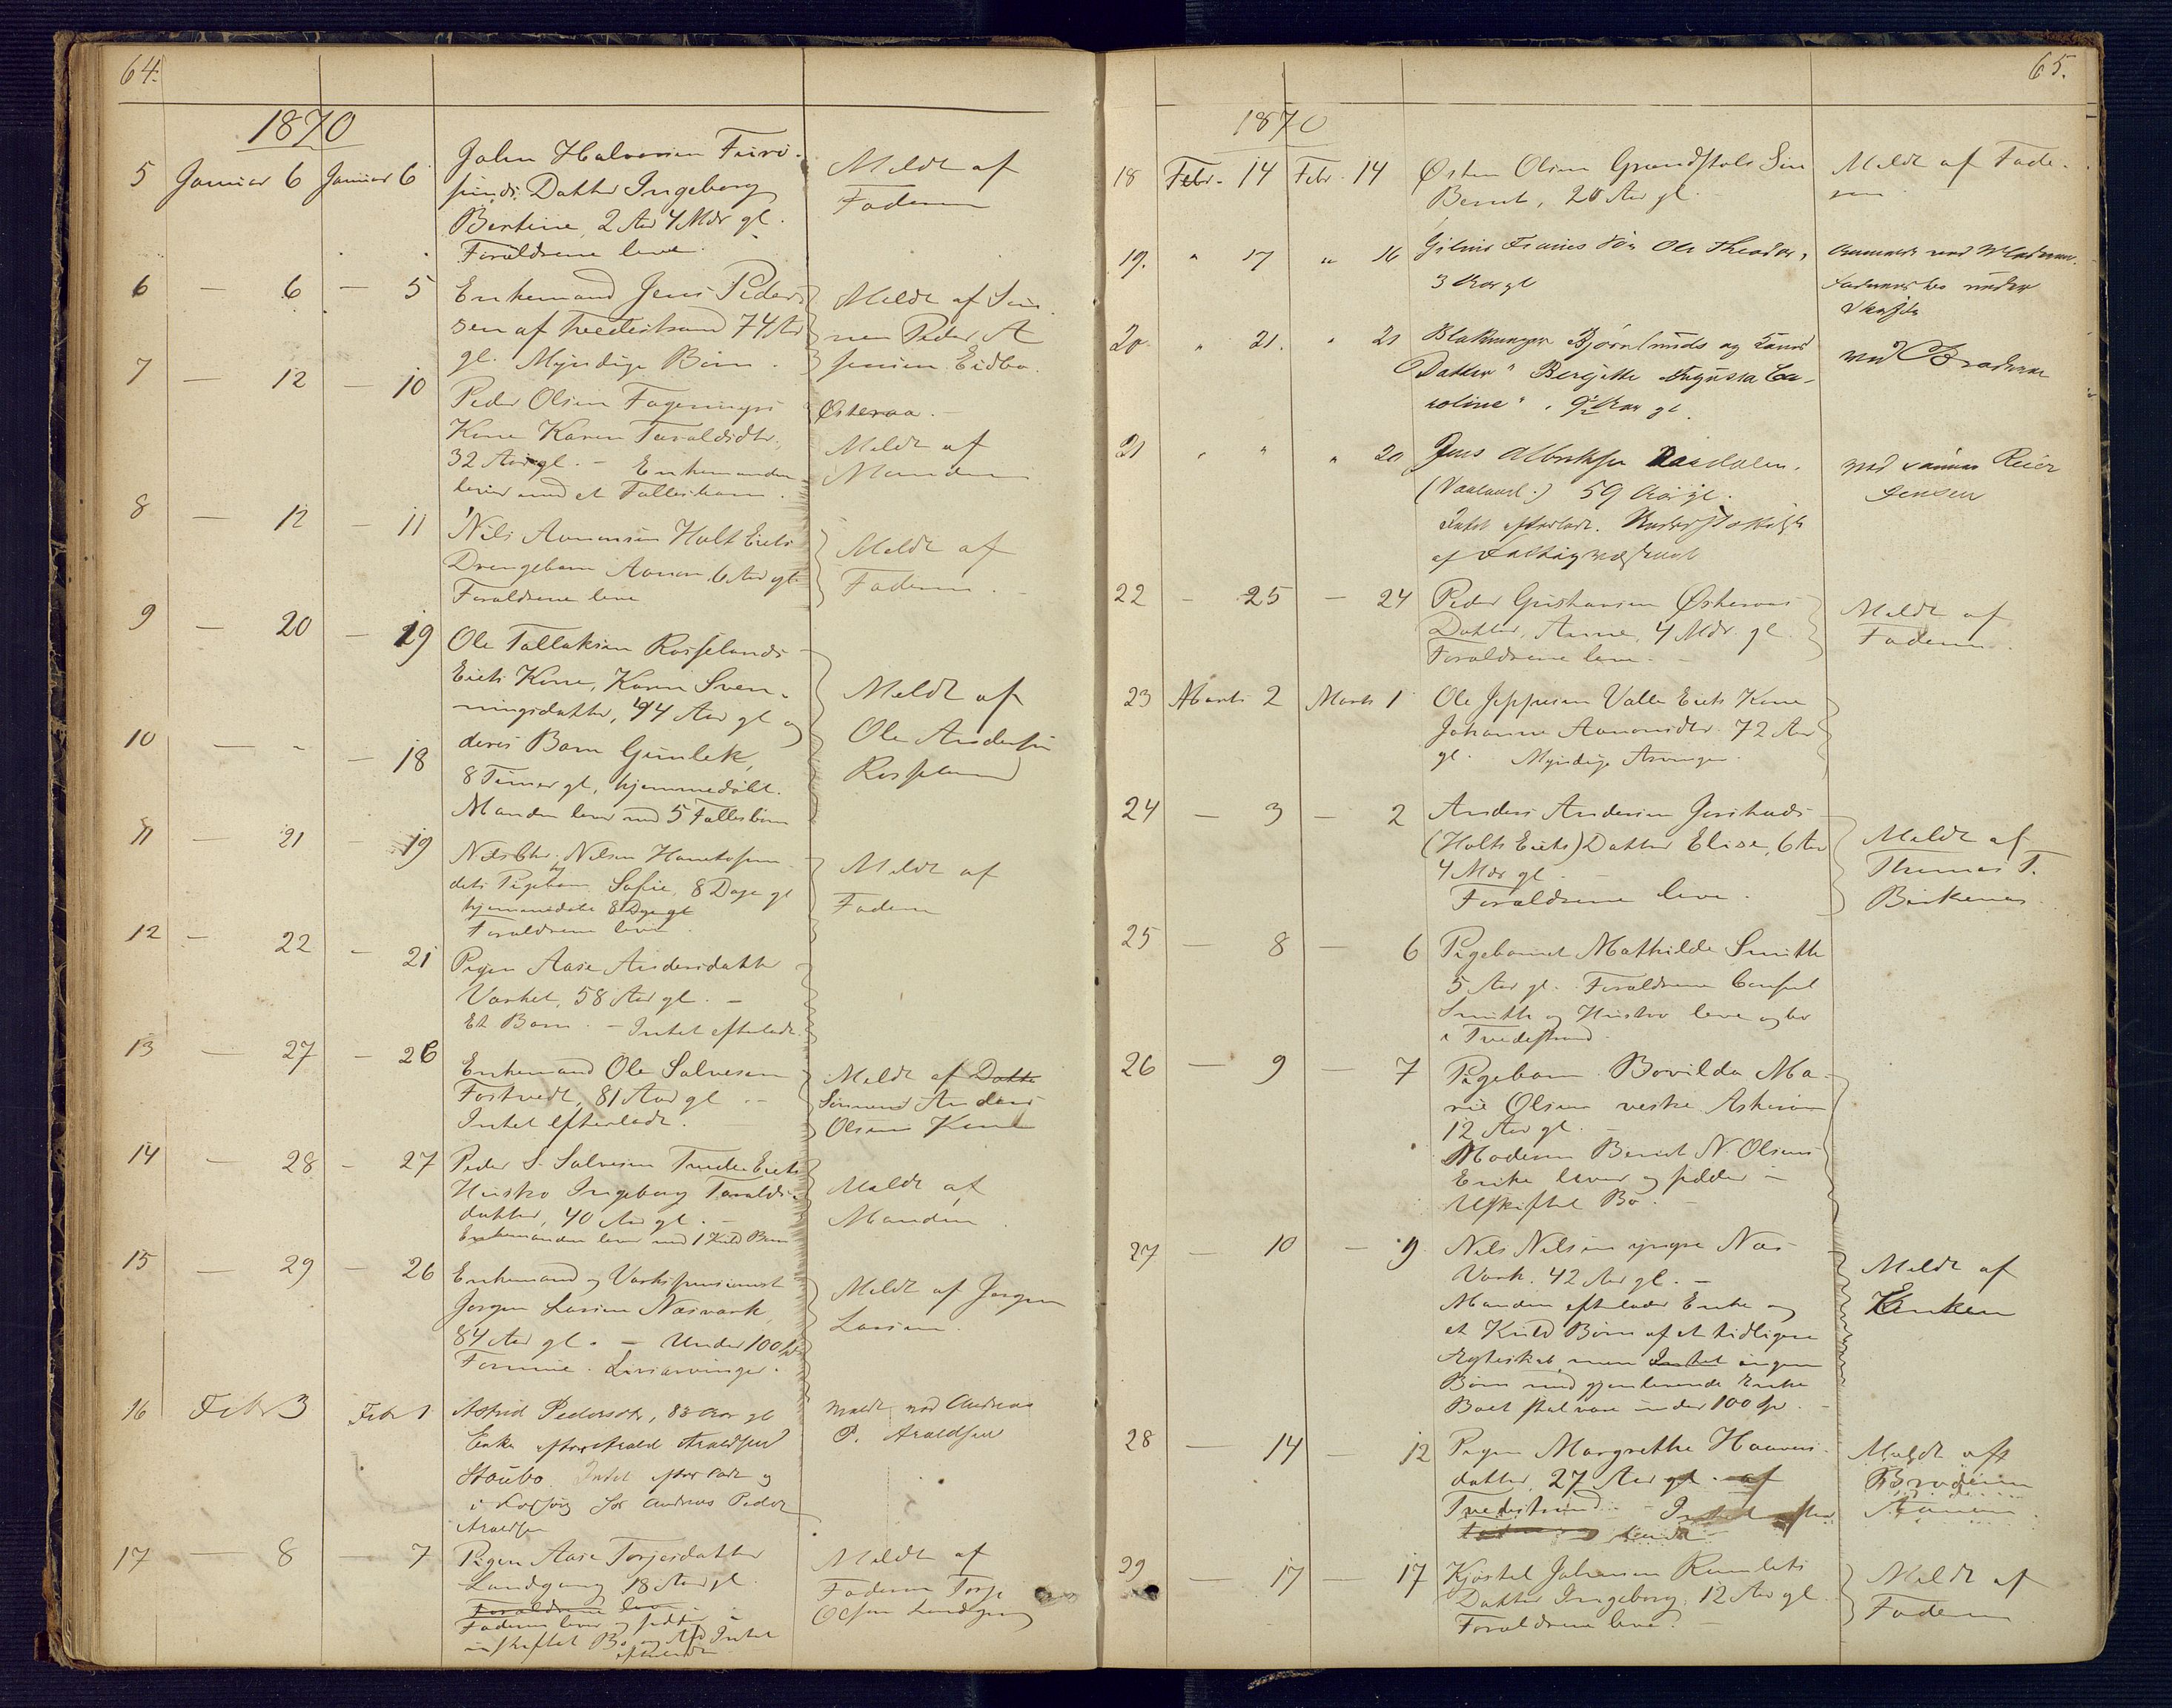 64.
1870
5 Januar 6 Januar 6 John Halvorsen Furø-
sunds Datter Ingeborg
Bertine, 2 Aar 4 Mdr gl.
Forældrene leve.
Meldt af
Faderen
6 — 6 — 5 Enkemand Jens Peder-
sen af Tvedestrand 74 Aar
gl. Myndige Børn.
Meldt af Søn
nen Peder A
Jensen Eidbo
Østeraa.
7 — 12 — 10 Peder Olsen
Kone Karen Taraldsdtr.
32 Aar gl. — Enkemanden
lever med et Fællesbarn.
Meldt af
Manden
8 — 12 — 11 Nils Aanonsen Holt Eiets
Drengebarn Aanon, 6 Aar gl.
Forældrene leve
Meldt af
Faderen.
9 — 20 — 19 Ole Tallaksen Rosselands
Eiets Kone, Karen Sven-
ningsdatter, 44 Aar gl og
10 — - — 18 deres Barn Gunlek,
8 Timer gl, hjemmedøbt.
Manden lever med 5 Fællesbørn
Meldt af
Ole Andersen
Rosseland
11 — 21 — 19 Nils Chr. Nilsen
dets Pigebarn Sofie, 8 Dage gl
hjemmedøbt 8 Dage gl
Forældrene leve.
Meldt af
Faderen
12 — 22 — 21 Pigen Aase Andersdatter
Værket, 58 Aar gl. —
Et Barn. — Intet efterladt.
13 — 27 — 26 Enkemand Ole Salvesen
Fostvedt, 81 Aar gl. —
Intet efterladt.
Meldt af Datte
Sønnen Anders
Olsen
14 — 28 — 27 Peder S. Salvesen Tvede Eiets
Hustro Ingeborg Taralds-
datter, 40 Aar gl. —
Enkemanden lever med 1 Kuld Børn
Meldt af
Manden.
15 — 29 — 26 Enkemand og Værkspensionist
Jørgen Larsen Næsværk
84 Aar gl. — Under 100 Spd
Formue. Livsarvinger.
Meldt af Jørgen
Larsen
16 Febr 3 Febr 1 Astrid Pedersdtr, 83 Aar gl
Enke efter Arald Araldsen
Staubo. Intet efterladt og
i Forsørg for Andreas Peder
Araldsen
Meldt ved Andreas
P. Araldsen
17 — 8 — 7 Pigen Aase Torjesdatter
Landgang 18 Aar gl.
Forældrene leve
Faderen lever og sidder i
uskiftet Bo og Afd Intet
efterladt
Meldt af
Faderen Torje
Olsen Landgang
65.
1870
18 Febr. 14 Febr. 14 Østen Olsen Grændstøls Søn
Bernt, 20 Aar gl.
Meldt af Fade-
ren
19. " 17 " 16 Ole Theodor,
3 Aar gl
20 " 21. " 21
Datter " Bergitte Augusta Ca-
roline", 9½ Aar gl.
ved Broderen
21 " " " 20 Jens Albretsen
59 Aar gl.
Intet efterladt. Understøttet
af Fattigvæsenet
ved Sønnen Reier
Jensen
22 — 25 — 24 Peder Gustavsen Østeraas
Datter, Anne, 4 Mdr. gl.
Forældrene leve.
Meldt af
Faderen.
23 Marts 2 Marts 1 Ole Jeppesen Valle Eiets Kone
Johanne Aanonsdtr. 72 Aar
gl. Myndige Arvinger.
24 — 3 — 2 Anders Andersen
(Holts Eiets) Datter Elise, 6 Aar
4 Mdr gl. —
Forældrene leve.
Meldt af
Thomas T.
Birkenes.
25 — 8 — 6 Pigebarnet Mathilde Smith
5 Aar gl. Forældrene Consul
Smith og Hustro leve og bo
i Tvedestrand.
26 — 9 — 7 Pigebarn Bovilda Ma-
rie Olsen vestre Askerøen
12 Aar gl. —
Moderen Bernt N. Olsens
Enke lever og sidder i
Uskiftet Bo. —
27 — 10 — 9 Nils Nilsen yngre Næs
Værk. 42 Aar gl. —
Manden efterlader Enke og
et Kuld Børn af et tidligere
Ægteskab, men Intet ingen
Børn med gjenlevende Enke
Boet skal være under 100 Spd. —
Meldt af
Enken
28 — 14 — 12 Pigen Margrethe Haavers-
datter, 27 Aar gl. af
Tvedestrand. — Intet efter
Meldt af
Broderen
29 — 17 — 17 Kjøstel Johansen
Datter Ingeborg, 12 Aar gl
Forældrene leve. —
Meldt af
Faderen